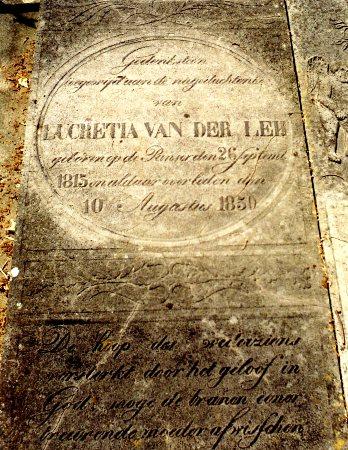 Gedenksteen
toegewijd aan de nagedachtenis
van
LUCRETIA VAN DER LEH
geboren op de Panser den 26 Septemb
1815 en aldaar overleden den
10 Augustus 1850
De hoop des wederziens
versterkt door het geloof in
God, moge de tranen eener
treurende moeder afwisschen